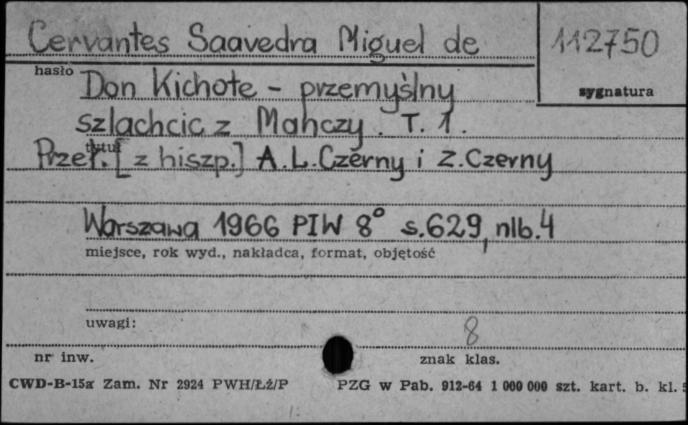 Cervantes Saavedra Miguel de 112750
hasło sygnatura
Don Kichote - przemyślny
szlachcic z Manczy. T. 1.
tytuł
Przeł. [z hiszp.] A.L.Czerny i Z.Czerny
Warszawa 1966 PIW 8° s.629, nlb.4
miejsce, rok wyd., nakładca, format, objętość
uwagi: 8
nr inw. znak klas.
CWD-B-15a Zam. Nr 2924 PWH/Łź/P PZG w Pab. 912-64 1 000 000 szt. kart. b. kl. 5